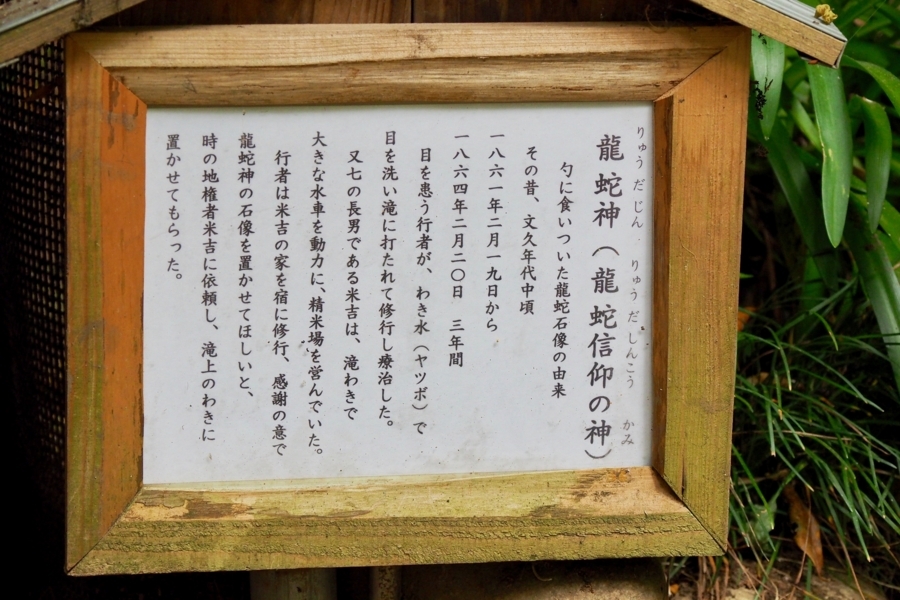 りゅうだじん　りゅうだしんこう　かみ
龍蛇神（龍蛇信仰の神）
勺に食いついた龍蛇石像の由来
その昔、文久年代中頃
一八六一年二月一九日から
一八六四年二月二〇日　三年間
目を患う行者が、わき水（ヤツボ）で
目を洗い滝に打たれて修行し療治した。
又七の長男である米吉は、滝わきで
大きな水車を動力に、精米場を営んでいた。
行者は米吉の家を宿に修行、感謝の意で
龍蛇神の石像を置かせてほしいと、
時の地権者米吉に依頼し、滝上のわきに
置かせてもらった。